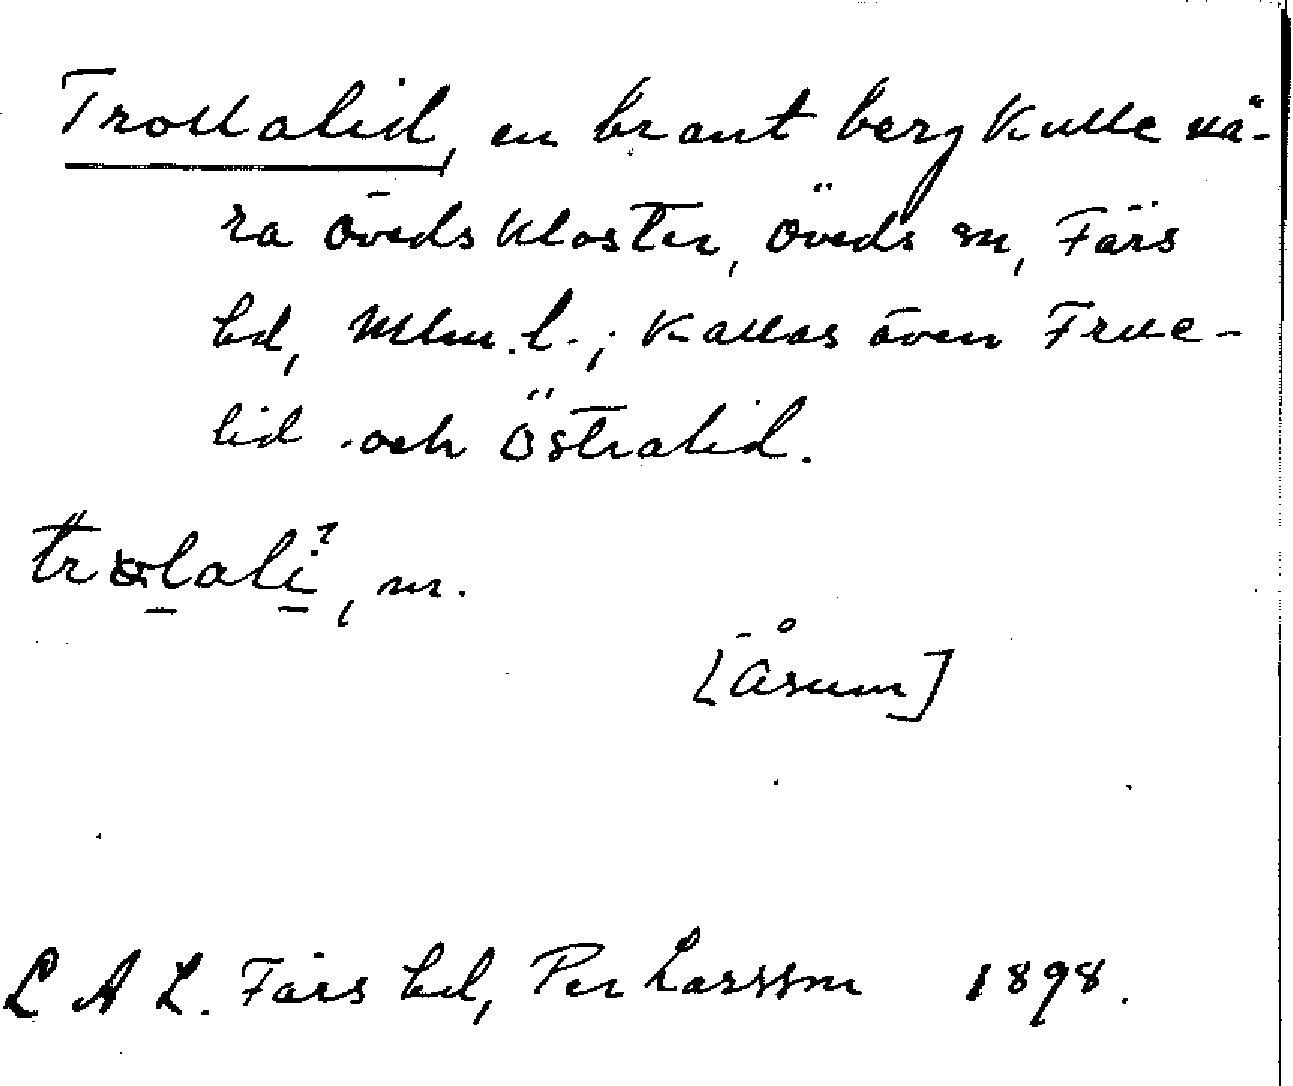 Trollalid, en brant bergkulle nä-
ra Öveds kloster, Öveds sn, Färs
hd, Mlm. l.; kallas även Frue-
lid och Östralid.
lali, m.
[Åsum]
L A L. Färs hd, Per Larsson 1898.